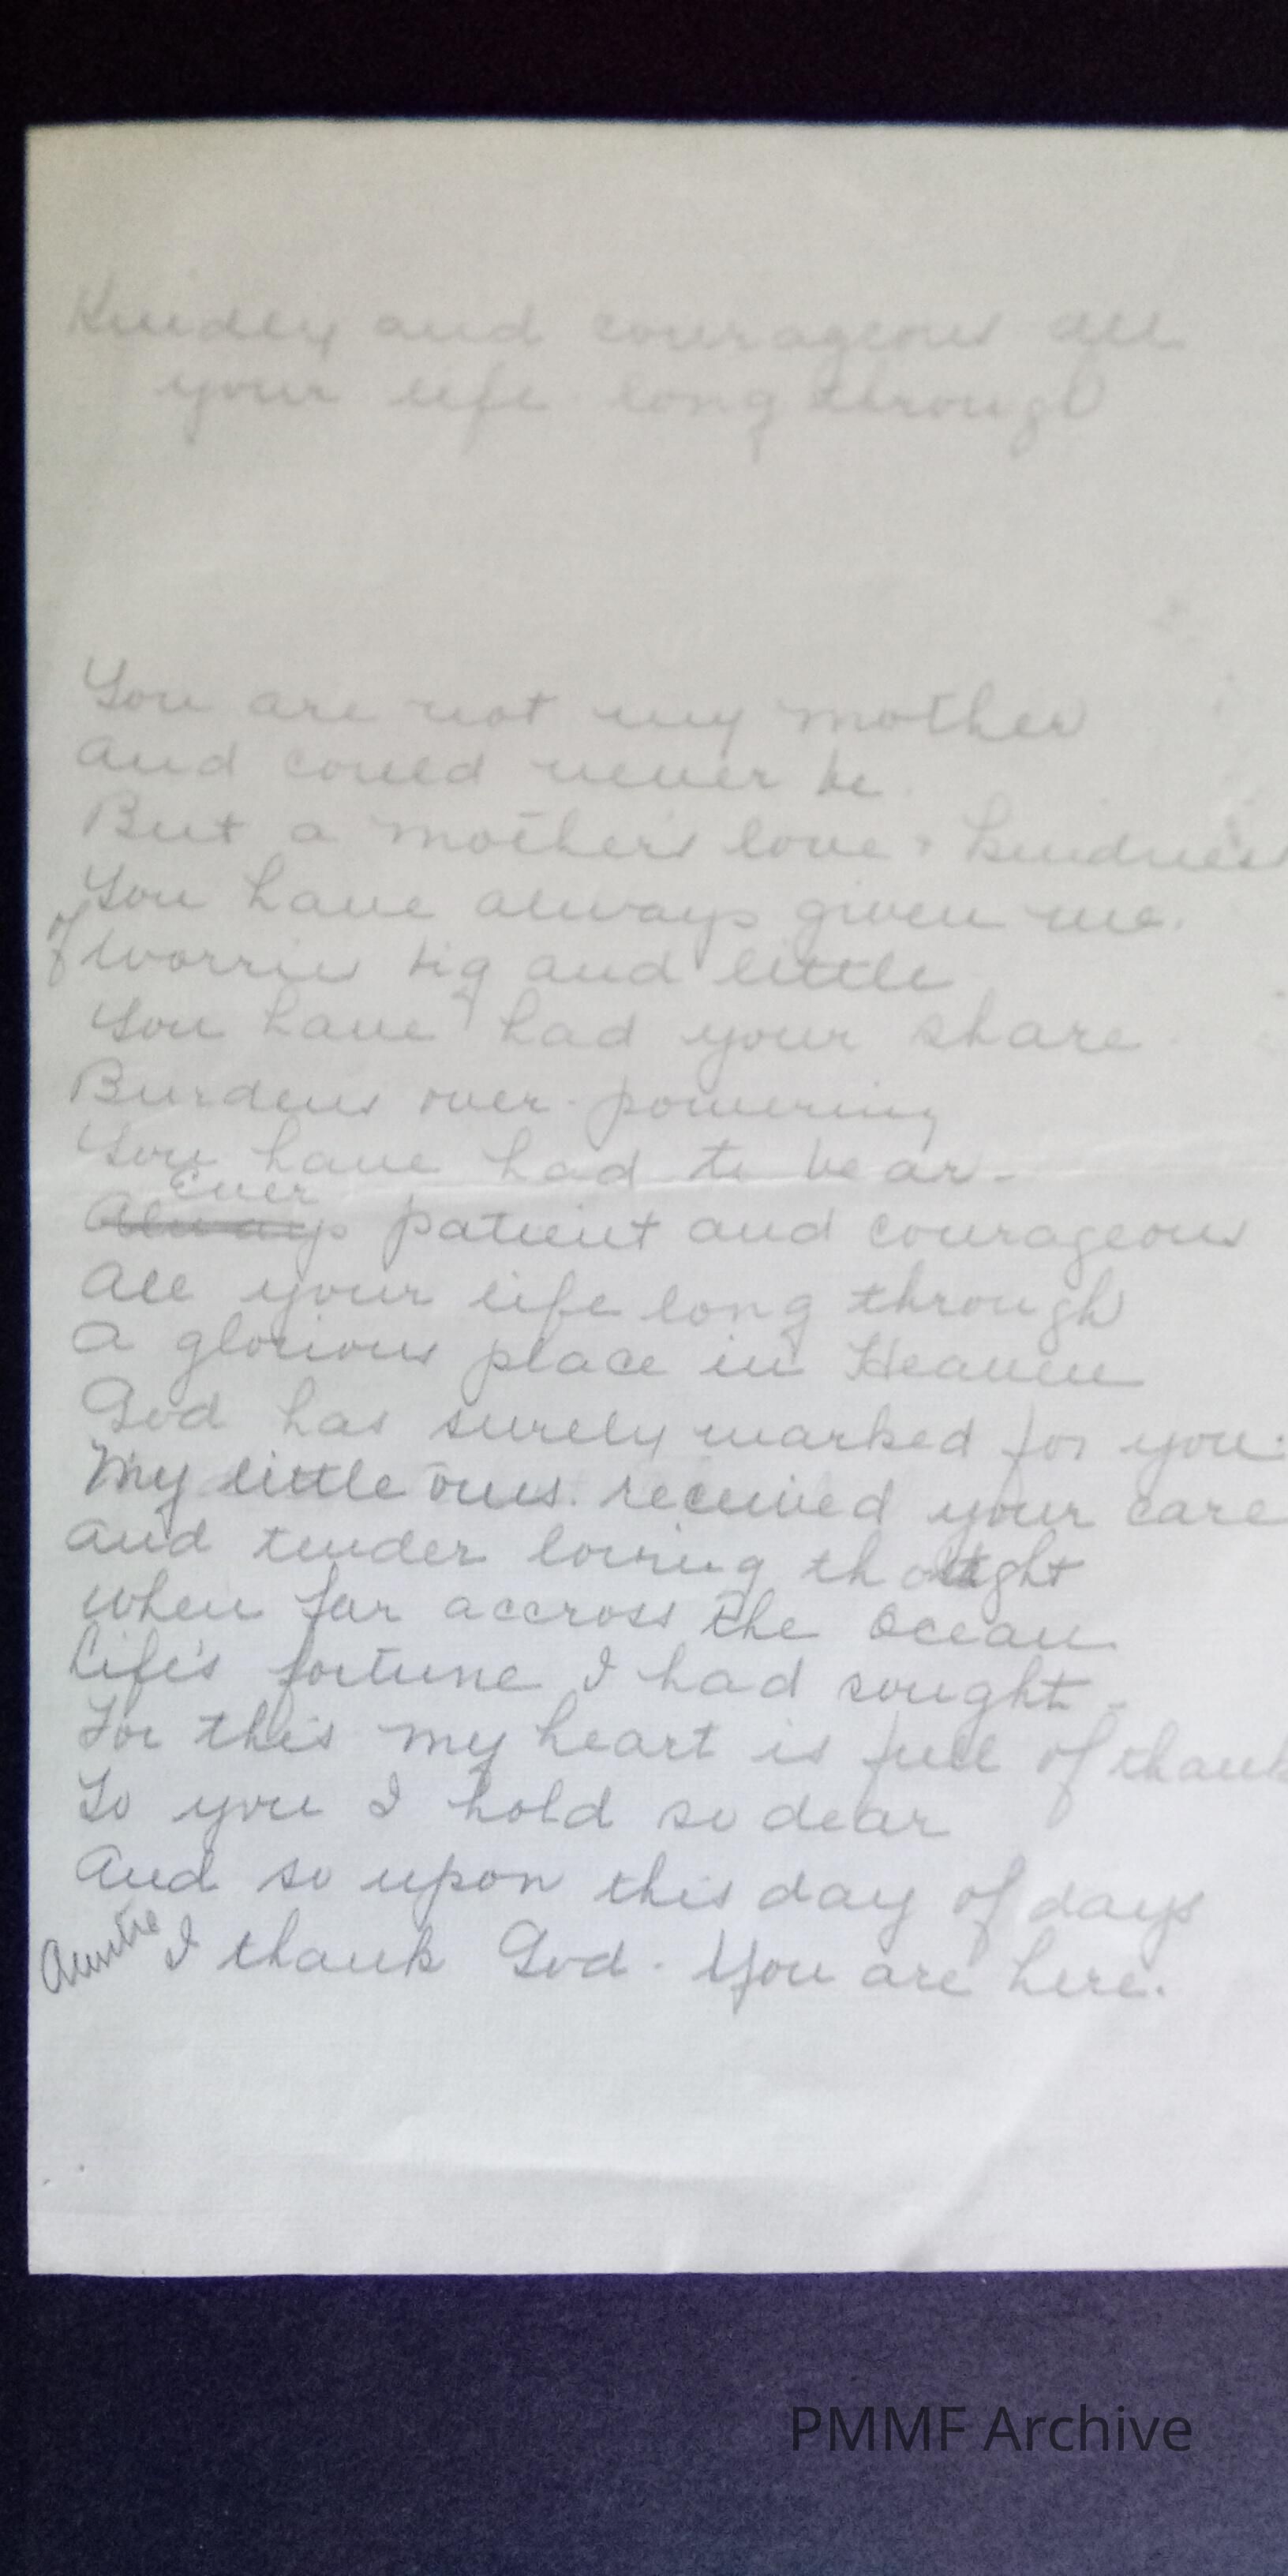 Kindly and courageous all
your life long through
You are not my mother
and could never be.
But a mother's love & kindness
You have always given me.
of Worries big and little
You have had your share
Burdens over-powering
You have had to bear-
Ever
Always patient and courageous
All your life long through
A glorious place in Heaven
God has surely marked for you.
My little ones received your care
and tender loving thought
when far accross the Ocean
Life's fortune I had sought -
For this my heart is full of thank
To you I hold so dear
And so upon this day of days
Auntie I thank God. You are here.
PMMF Archive